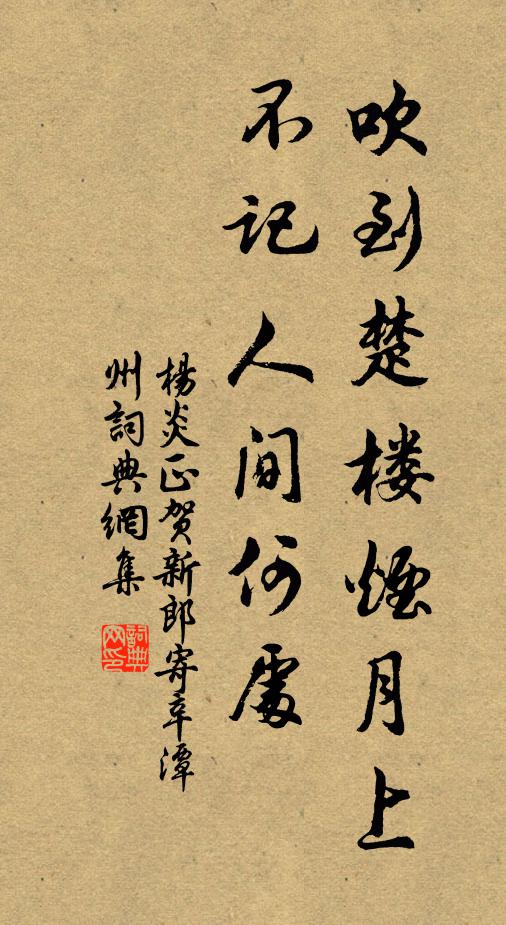 吹到楚楼煙月上
不记人间何處
楊炎正贺新郎寄辛潭
州詞典網集
詞典
网印